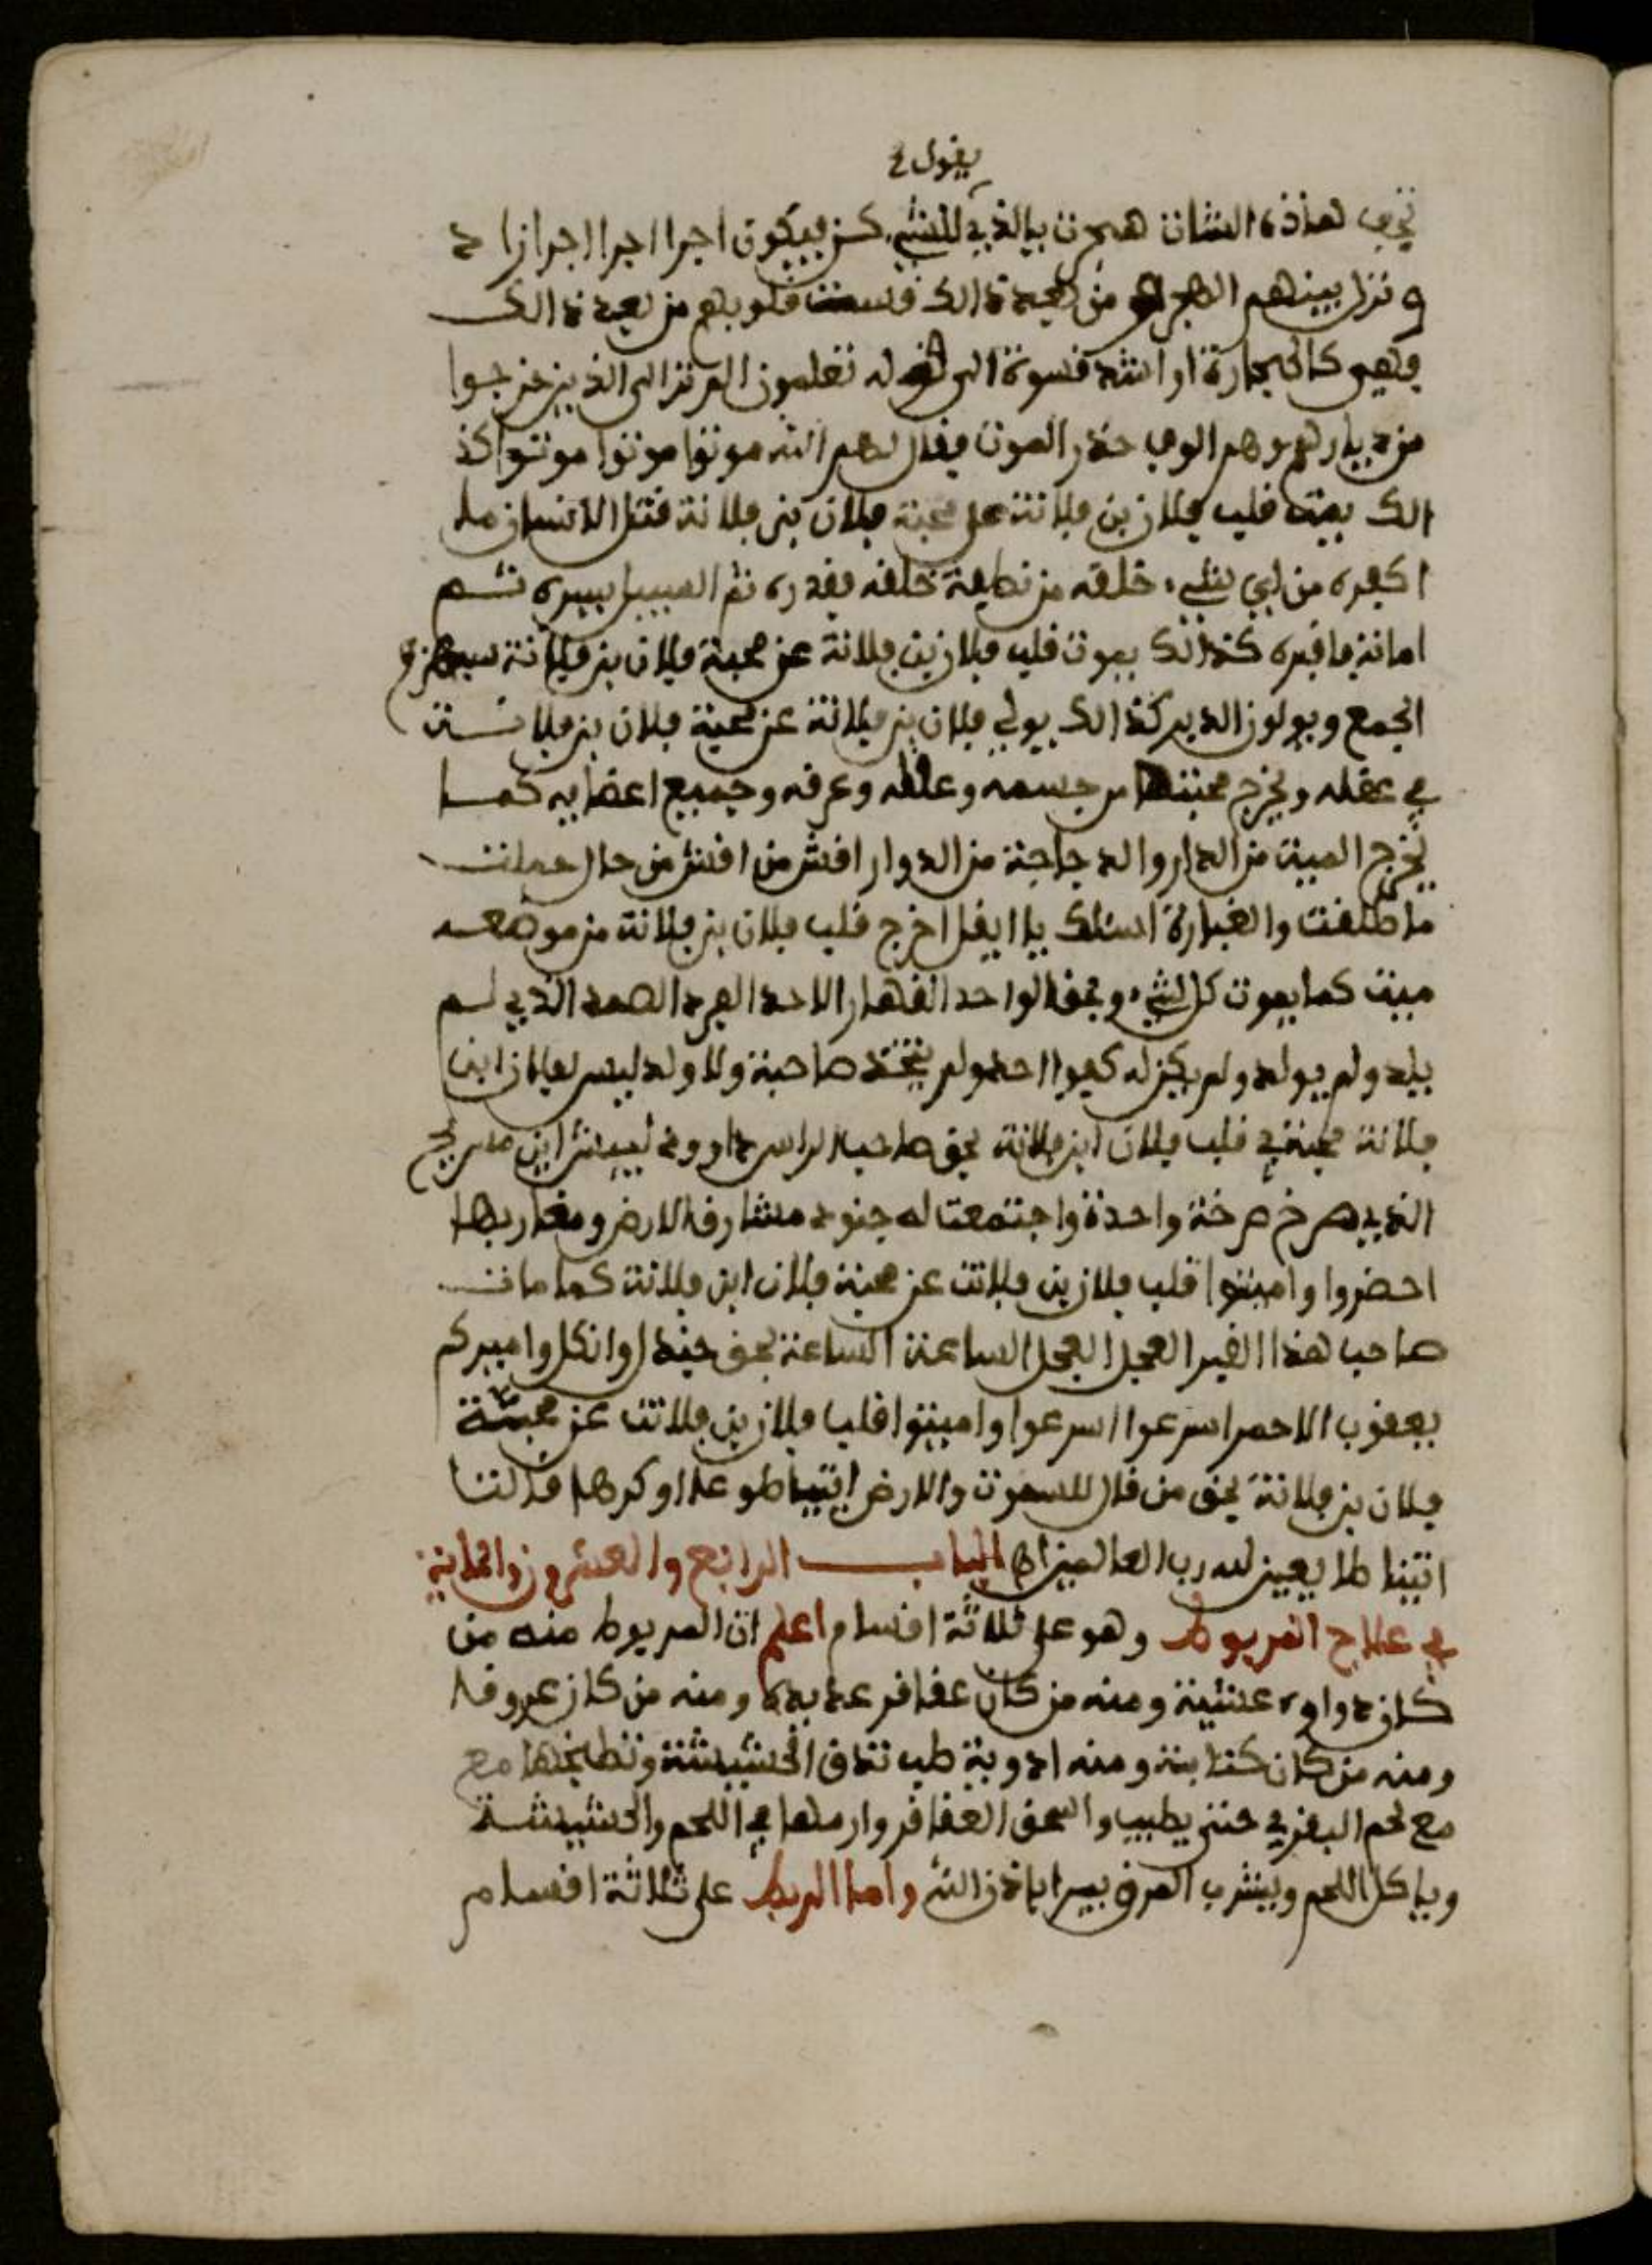 يقول
هذه الشان همرت بالذي للشيء كن فيكون اجرا اجرا اجرازا د
ونزل بينهم من بعد ذالك قست قلوبهم من بعد ذالك
فهي كالحجارة او اشد قسوة الى قوله تعلمون الم تر الى الذين خرجوا
من ديارهم وهم الوف حذر الموت فقال لهم الله موتوا موتوا موتوا كذ
الك يميت قلب فلان بن فلانة على محبة فلان بن فلانة قتل الانسان ما
اكفره من اي شيء خلقه من نطفة خلقه فقدره ثم السبيل يسره ثم
اماته فاقبره كذالك يموت قلب فلان بن فلانة عن محبة فلان بن فلانة سيهزم
الجمع ويولون الدبر كذالك يولي فلان بن فلانة عن محبة فلان بن فلانة
في عقله ويخرج محبتها من جسمه وعظمه وعرقه وجميع اعضايه كما
يخرج الميت من الدار والدجاجة من الدوار افش من افش من حال عملت
ما طلفت والغبارة اسئلك يا ايفل اخرج قلب فلان بن فلانة من موضعه
ميت كما يموت كل شيء وبحق الواحد القهار الاحد الفرد الصمد الذي لم
يلد ولم يولد ولم يكن له كفوا احد ولم يتخذ صاحبة ولا ولد ليس لفلان ابن
فلانة محبة في قلب فلان ابن فلانة بحق صاحب الراس
الذي صرخ صرخة واحدة واجتمعت له جنود مشارق الارض ومغاربها
احضروا واميتوا قلب فلان بن فلانت عن محبة فلان ابن فلانة كما مات
صاحب هذا القبر العجل العجل الساعة الساعة بحق واميركم
يعقوب الاحمر اسرعوا اسرعوا واميتوا قلب فلان بن فلانت عن محبة
فلان بن فلانة بحق من قال للسموت والارض ايتيا طوعا او كرها قالتا
اتينا طايعين لله رب العالمين اه الباب الرابع والعشرون
في علاج المربوط وهو على ثلاثة اقسام اعلم ان المربوط منه من
كان دواوه عشبة ومنه من كان عقاقر ومنه من كان عروقا
ومنه من كان كتابة ومنه ادوية طب تدق الحشيشة وتطبخها مع
مع لحم البقري حتى يطيب واسحق العقاقر وارمها في اللحم والحشيشة
وياكل اللحم ويشرب المرق يبرا باذن الله واما الربط على ثلاثة اقسام